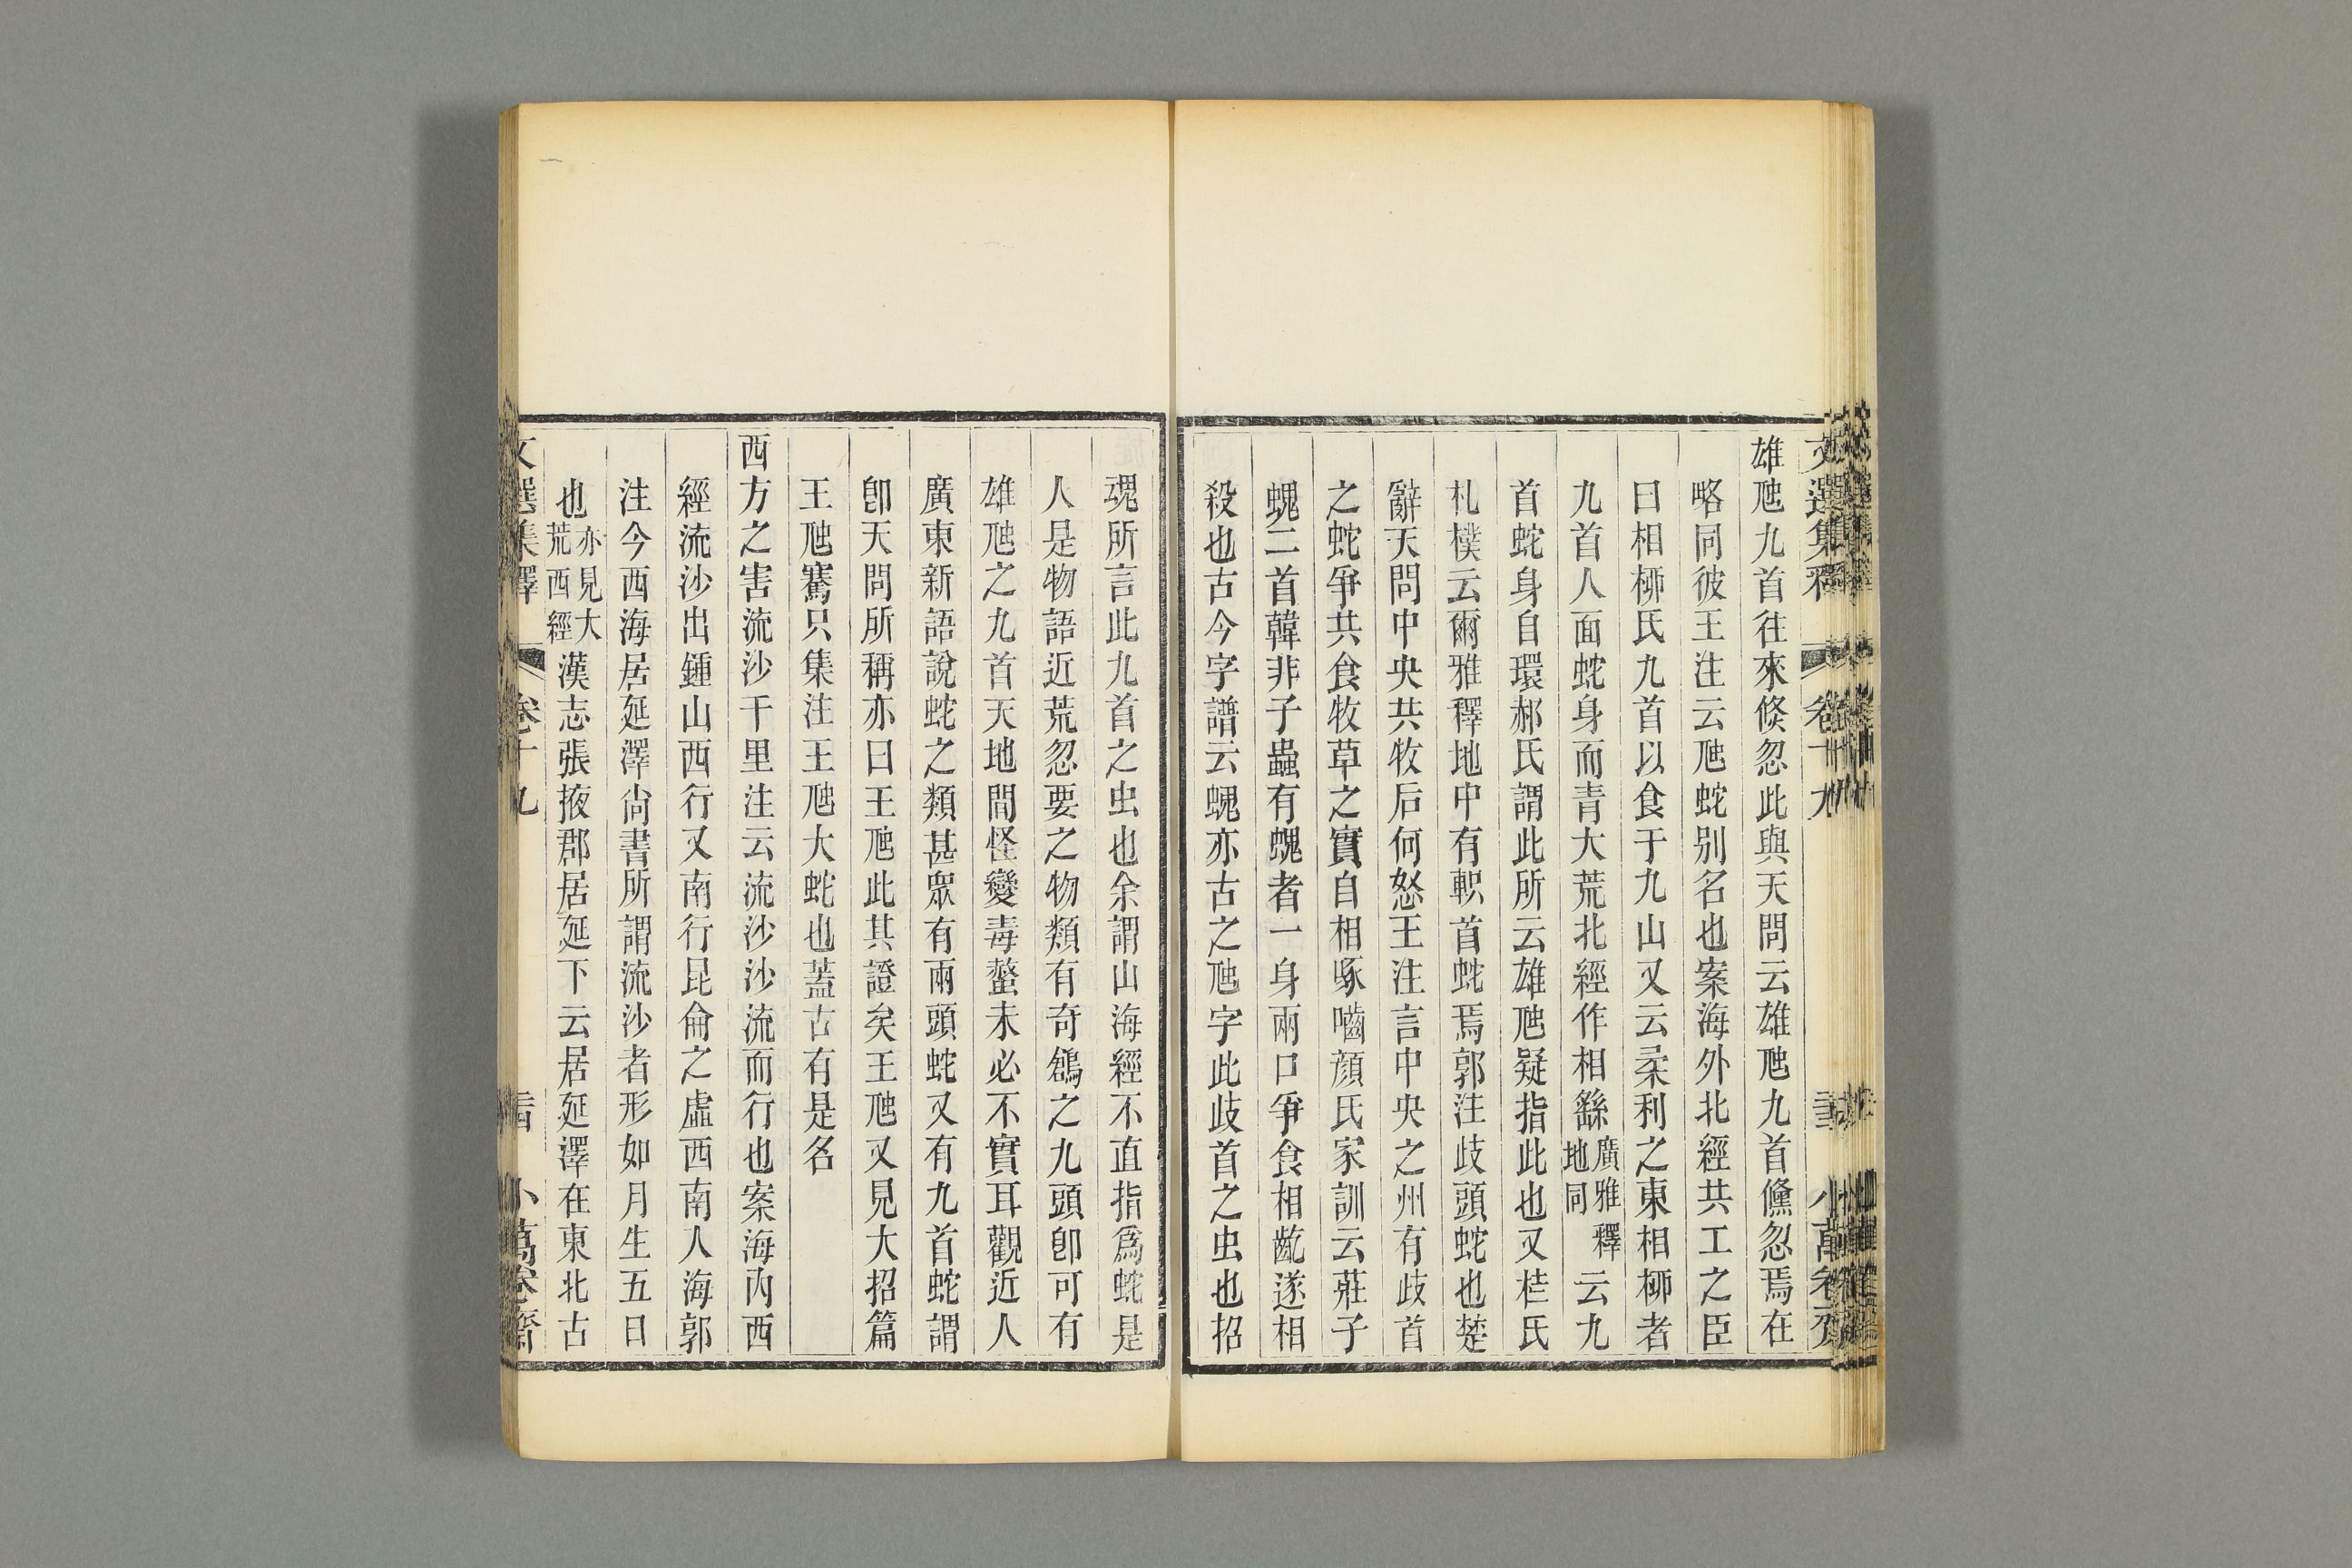 雄虺九首往來倐忽此與天問云雄虺九首儵忽焉在
略同彼王注云虺蛇別名也案海外北經共工之臣
曰相桺氏九首以食于九山又云柔利之東相桺者
九首人面蛇身而青大荒北經作相繇廣雅釋地同云九
首蛇身自環郝氏謂此所云雄虺疑指此也又桂氏
札樸云爾雅釋地中有軹首蛇焉郭注歧頭蛇也楚
辭天問中央共牧后何怒王注言中央之州有歧首
之蛇爭共食牧草之實自相啄嚙顏氏家訓云莊子
螝二首韓非子蟲有螝者一身兩口爭食相齕遂相
殺也古今字譜云螝亦古之虺字此歧首之虫也招
魂所言此九首之虫也余謂山海經不直指爲蛇是
人是物語近荒忽要之物類有奇鶬之九頭卽可有
雄虺之九首天地間怪變毒螫未必不實耳觀近人
廣東新語說蛇之類甚眾有兩頭蛇又有九首蛇謂
卽天問所稱亦曰王虺此其證矣王虺又見大招篇
王虺騫只集注王虺大蛇也蓋古有是名
西方之害流沙千里注云流沙沙流而行也案海內西
經流沙出鍾山西行又南行昆侖之虛西南入海郭
注今西海居延澤尙書所謂流沙者形如月生五日
也亦見大荒西經漢志張掖郡居延下云居延澤在東北古
文選集釋 卷十九 小萬卷齋